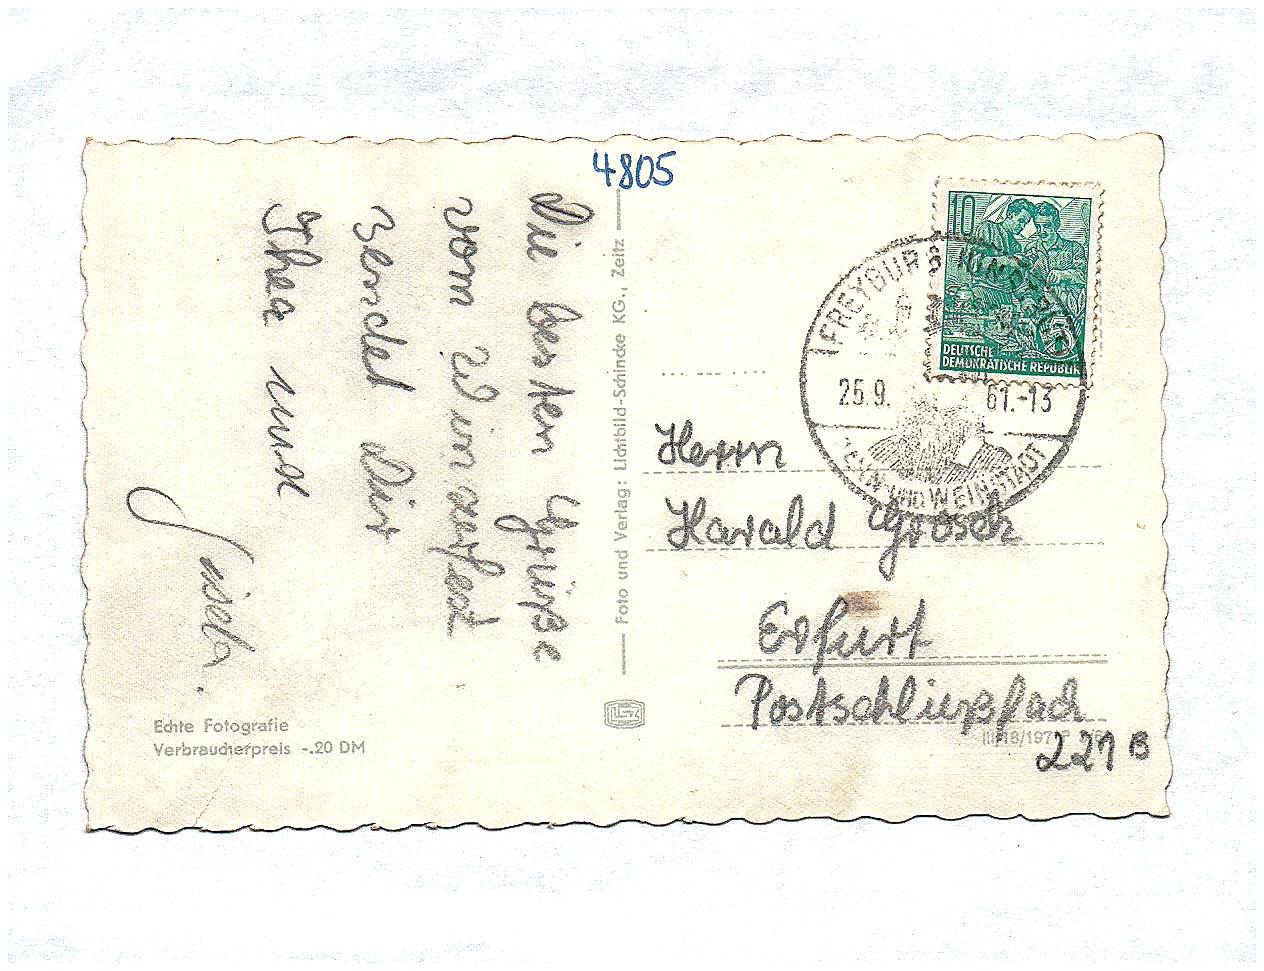 4805
Die besten Grüße
vom Winzerfest
sendet Dir
Thea und
Gisela.
Echte Fotografie
Verbraucherpreis -.20 DM
Foto und Verlag: Lichtbild-Schincke KG., Zeitz
10
5
DEUTSCHE
DEMOKRATISCHE REPUBLIK
FREYBURG (UNSTRUT)
25.9. 61.-13
JAHN- UND WEINSTADT
Herrn
Harald Grosch
Erfurt
Postschließfach
III/18/197
221 B